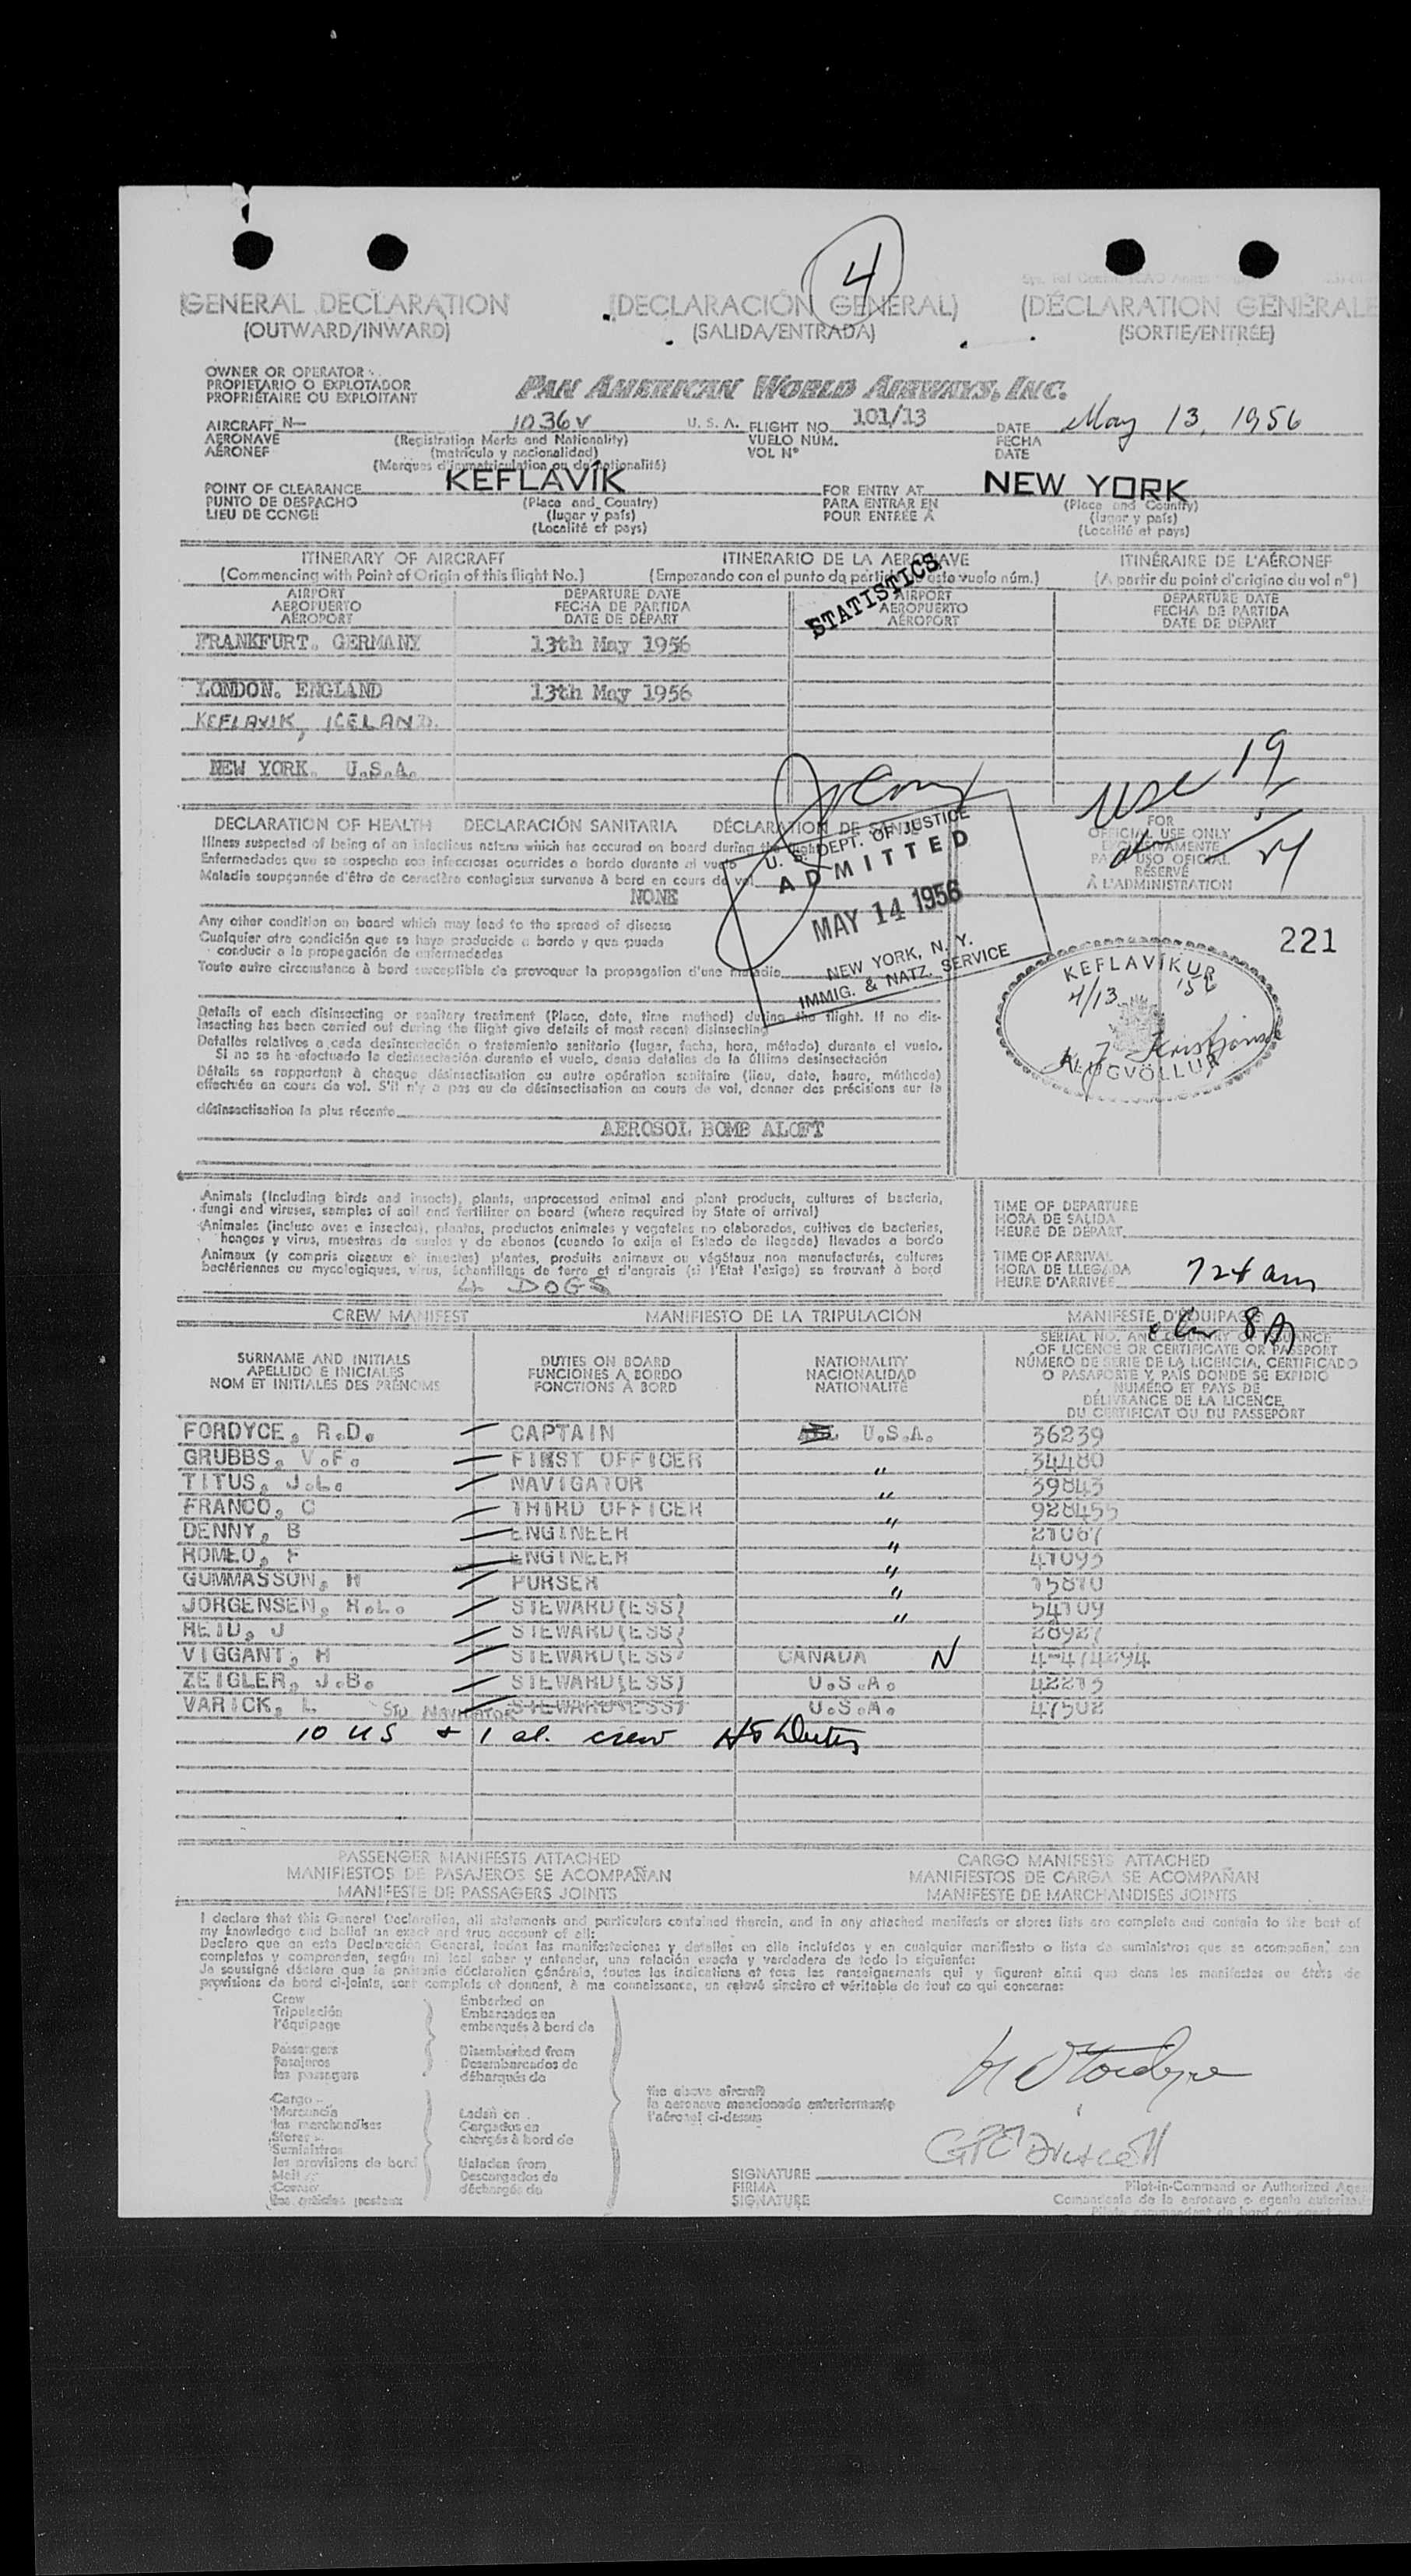 4
GENERAL DECLARATION
(OUTWARD/INWARD)
(DECLARACIÓN GENERAL)
(SALIDA/ENTRADA)
(DÉCLARATION GÉNÉRALE
(SORTIE/ENTRÉE)
OWNER OR OPERATOR
PROPIETARIO O EXPLOTADOR
PROPRIÉTAIRE OU EXPLOITANT
PAN AMERICAN WORLD AIRWAYS, INC.
AIRCRAFT N— 1036V U. S. A. FLIGHT NO. 101/13 DATE May 13, 1956
AERONAVE (Registration Marks and Nationality) VUELO NÚM. FECHA
AÉRONEF (matrícula y nacionalidad) VOL Nº DATE
(Marques d'immatriculation ou de nationalité)
POINT OF CLEARANCE KEFLAVÍK FOR ENTRY AT NEW YORK
PUNTO DE DESPACHO (Place and Country) PARA ENTRAR EN (Place and Country)
LIEU DE CONGÉ (lugar y país) POUR ENTRÉE À (lugar y país)
(Localité et pays) (Localité et pays)
ITINERARY OF AIRCRAFT ITINERARIO DE LA AERONAVE ITINÉRAIRE DE L'AÉRONEF
(Commencing with Point of Origin of this flight No.) (Empezando con el punto de partida este vuelo núm.) (A partir du point d'origine du vol nº)
STATISTICS
AIRPORT DEPARTURE DATE AIRPORT DEPARTURE DATE
AEROPUERTO FECHA DE PARTIDA AEROPUERTO FECHA DE PARTIDA
AÉROPORT DATE DE DÉPART AÉROPORT DATE DE DÉPART
FRANKFURT. GERMANY 13th May 1956
LONDON. ENGLAND 13th May 1956
KEFLAVIK, ICELAND.
NEW YORK. U.S.A.
USC 19
DECLARATION OF HEALTH DECLARACIÓN SANITARIA DÉCLARATION DE SANTÉ
Illness suspected of being of an infectious nature which has occured on board during the flight
Enfermedades que se sospecha son infecciosas ocurridas a bordo durante el vuelo
Maladie soupçonnée d'être de caractère contagieux survenue à bord en cours de vol
NONE
FOR
OFFICIAL USE ONLY
EXCLUSIVAMENTE
PARA USO OFICIAL
RÉSERVÉ
À L'ADMINISTRATION
U. S. DEPT. OF JUSTICE
ADMITTED
MAY 14 1956
NEW YORK, N. Y.
IMMIG. & NATZ. SERVICE
Any other condition on board which may lead to the spread of disease
Cualquier otra condición que se haya producido a bordo y que pueda
conducir a la propagación de enfermedades
Toute autre circonstance à bord susceptible de provoquer la propagation d'une maladie
221
KEFLAVÍKUR
4/13 '56
FLUGVÖLLUR
Details of each disinsecting or sanitary treatment (Place, date, time method) during the flight. If no dis-
insecting has been carried out during the flight give details of most recent disinsecting
Detalles relativos a cada desinsectación o tratamiento sanitario (lugar, fecha, hora, método) durante el vuelo.
Si no se ha efectuado la desinsectación durante el vuelo, dense detalles de la última desinsectación
Détails se rapportant à chaque désinsectisation ou autre opération sanitaire (lieu, date, heure, méthode)
effectuée en cours de vol. S'il n'y a pas eu de désinsectisation en cours de vol, donner des précisions sur la
désinsectisation la plus récente
AEROSOL BOMB ALOFT
Animals (Including birds and insects), plants, unprocessed animal and plant products, cultures of bacteria,
fungi and viruses, samples of soil and fertilizer on board (where required by State of arrival)
Animales (incluso aves e insectos), plantas, productos animales y vegetales no elaborados, cultivos de bacterias,
hongos y virus, muestras de suelos y de abonos (cuando lo exija el Estado de llegada) llevados a bordo
Animaux (y compris oiseaux et insectes) plantes, produits animaux ou végétaux non manufacturés, cultures
bactériennes ou mycologiques, virus, échantillons de terre et d'engrais (si l'Etat l'exige) se trouvant à bord
4 DOGS
TIME OF DEPARTURE
HORA DE SALIDA
HEURE DE DÉPART
TIME OF ARRIVAL
HORA DE LLEGADA
HEURE D'ARRIVÉE 724 am
CREW MANIFEST MANIFIESTO DE LA TRIPULACIÓN MANIFESTE D'ÉQUIPAGE
SURNAME AND INITIALS
APELLIDO E INICIALES
NOM ET INITIALES DES PRÉNOMS
DUTIES ON BOARD
FUNCIONES A BORDO
FONCTIONS À BORD
NATIONALITY
NACIONALIDAD
NATIONALITÉ
SERIAL NO. AND COUNTRY OF ISSUANCE
OF LICENCE OR CERTIFICATE OR PASSPORT
NÚMERO DE SERIE DE LA LICENCIA, CERTIFICADO
O PASAPORTE Y PAÍS DONDE SE EXPIDIÓ
NUMÉRO ET PAYS DE
DÉLIVRANCE DE LA LICENCE,
DU CERTIFICAT OU DU PASSEPORT
FORDYCE, R.D. CAPTAIN U.S.A. 36239
GRUBBS, V.F. FIRST OFFICER " 34480
TITUS, J.L. NAVIGATOR " 39843
FRANCO, C THIRD OFFICER " 928455
DENNY, B ENGINEER " 21067
ROMEO, F ENGINEER " 41093
GUMMASSON, H PURSER " 15810
JORGENSEN, H.L. STEWARD(ESS) " 54109
REID, J STEWARD(ESS) 28927
VIGGANT, H STEWARD(ESS) CANADA N 4-474294
ZEIGLER, J.B. STEWARD(ESS) U.S.A. 42213
VARICK, L Sto Navigator STEWARD(ESS) U.S.A. 47502
10 US & 1 al. crew
PASSENGER MANIFESTS ATTACHED
MANIFIESTOS DE PASAJEROS SE ACOMPAÑAN
MANIFESTE DE PASSAGERS JOINTS
CARGO MANIFESTS ATTACHED
MANIFIESTOS DE CARGA SE ACOMPAÑAN
MANIFESTE DE MARCHANDISES JOINTS
I declare that this General Declaration, all statements and particulars contained therein, and in any attached manifests or stores lists are complete and contain to the best of
my knowledge and belief an exact and true account of all:
Declaro que en esta Declaración General, todas las manifestaciones y detalles en ella incluídos y en cualquier manifiesto o lista de suministros que se acompañen, son
completos y comprenden, según mi leal saber y entender, una relación exacta y verdadera de todo lo siguiente:
Je soussigné déclare que la présente déclaration générale, toutes les indications et tous les renseignements qui y figurent ainsi que dans les manifestes ou états de
provisions de bord ci-joints, sont complets et donnent, à ma connaissance, un relevé sincère et véritable de tout ce qui concerne:
Crew
Tripulación
l'équipage
Passengers
Pasajeros
les passagers
Cargo
Mercancía
les marchandises
Stores
Suministros
les provisions de bord
Mail
Correo
les articles postaux
Embarked on
Embarcados en
embarqués à bord de
Disembarked from
Desembarcados de
débarqués de
Laden on
Cargados en
chargés à bord de
Unladen from
Descargados de
déchargés de
the above aircraft
la aeronave mencionada anteriormente
l'aéronef ci-dessus
SIGNATURE
FIRMA
SIGNATURE
Pilot-in-Command or Authorized Agen
Comandante de la aeronave o agente autoriza